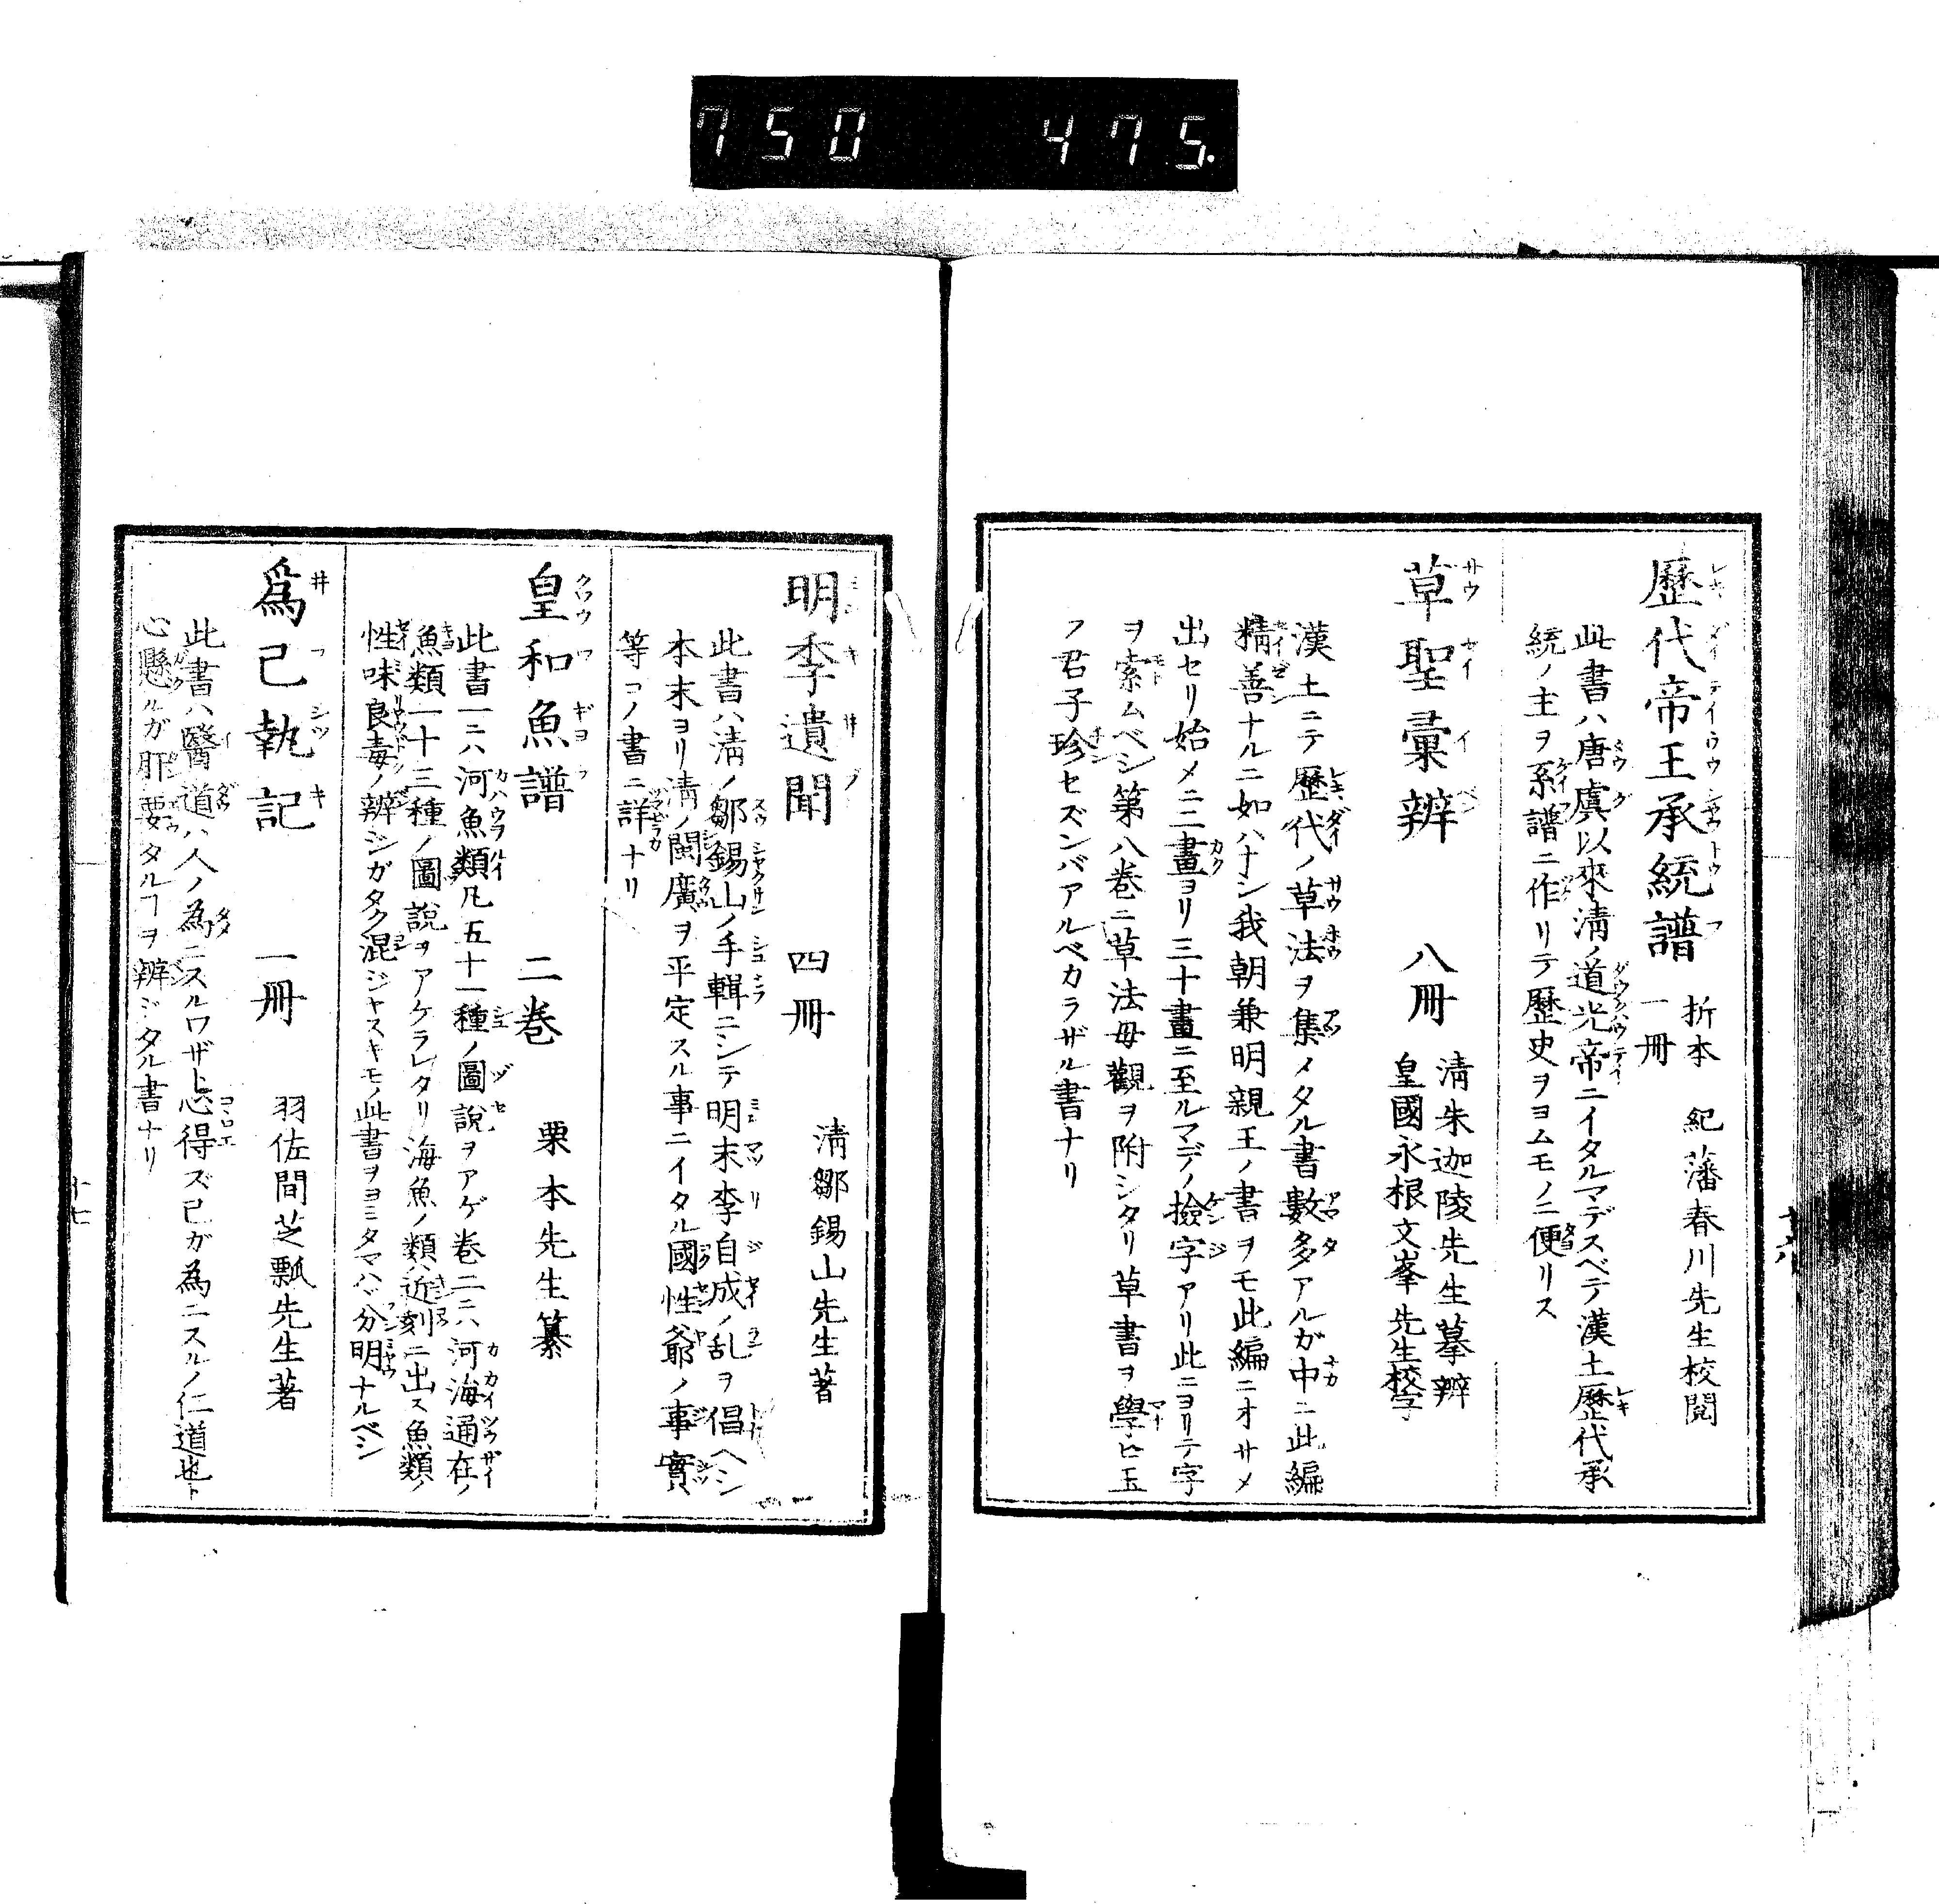 750 475.
歷代帝王承統譜 折本一冊 紀藩春川先生校閲
此書ハ唐虞以來淸ノ道光帝ニイタルマデスベテ漢土歷代承
統ノ主ヲ系譜ニ作リテ歷史ヲヨムモノニ便リス
草聖彙辨 八冊 淸朱迦陵先生摹辨
皇國永根文峯先生校字
漢土ニテ歷代ノ草法ヲ集メタル書數多アルガ中ニ此編
精善ナルニ如ハナシ我朝兼明親王ノ書ヲモ此編ニオサメ
出セリ始メニ二畫ヨリ三十畫ニ至ルマデノ撿字アリ此ニヨリテ字
ヲ索ムベシ第八巻ニ草法毋觀ヲ附シタリ草書ヲ學ヒ玉
フ君子珍セズンバアルベカラザル書ナリ
明季遺聞 四冊 淸鄒錫山先生著
此書ハ淸ノ鄒錫山ノ手輯ニシテ明末李自成ノ乱ヲ倡ヘシ
本末ヨリ淸ノ閩廣ヲ平定スル事ニイタル國性爺ノ事實
等コノ書ニ詳ナリ
皇和魚譜 二巻 栗本先生纂
此書一ニハ河魚類凡五十一種ノ圖說ヲアゲ巻二ニハ河海通在ノ
魚類一十三種ノ圖說ヲアケラレタリ海魚ノ類ハ近刻ニ出ス魚類ノ
性味良毒ノ辨シガタク混ジヤスキモノ此書ヲヨミタマハヾ分明ナルベシ
爲己執記 一冊 羽佐間芝瓢先生著
此書ハ醫道ハ人ノ為ニスルワザト心得ズ己ガ為ニスルノ仁道也ト
心懸ルガ肝要タルヿヲ辨ジタル書ナリ
十七